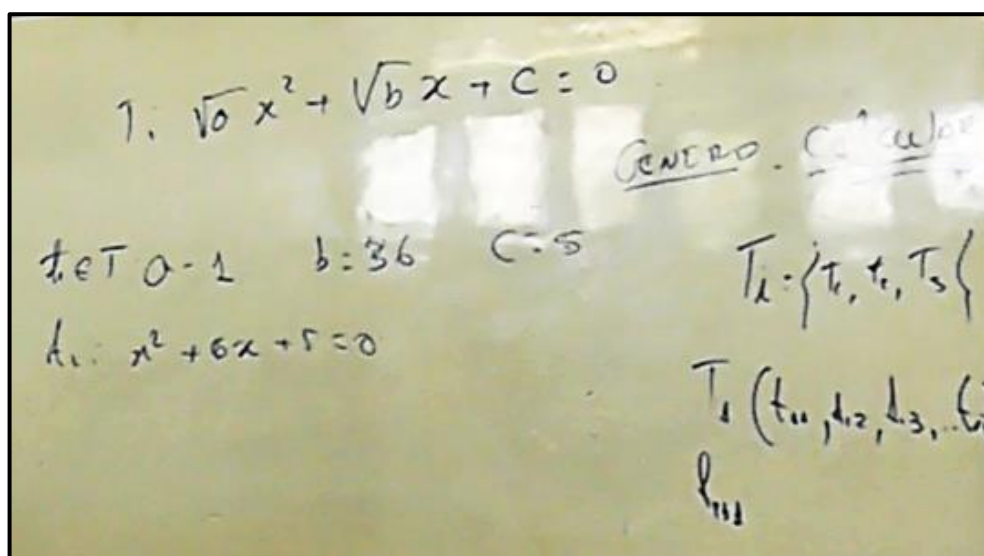 1. √a x² + √b x + C = 0
GENERO. Cálculo
t₁ ∈ T a = 1 b = 36 C = 5
T₁ = {t₁, t₂, T₃{
t₁: x² + 6x + 5 = 0
T₁ (t₁₁, t₁₂, t₁₃, ..t
t₁₁₁